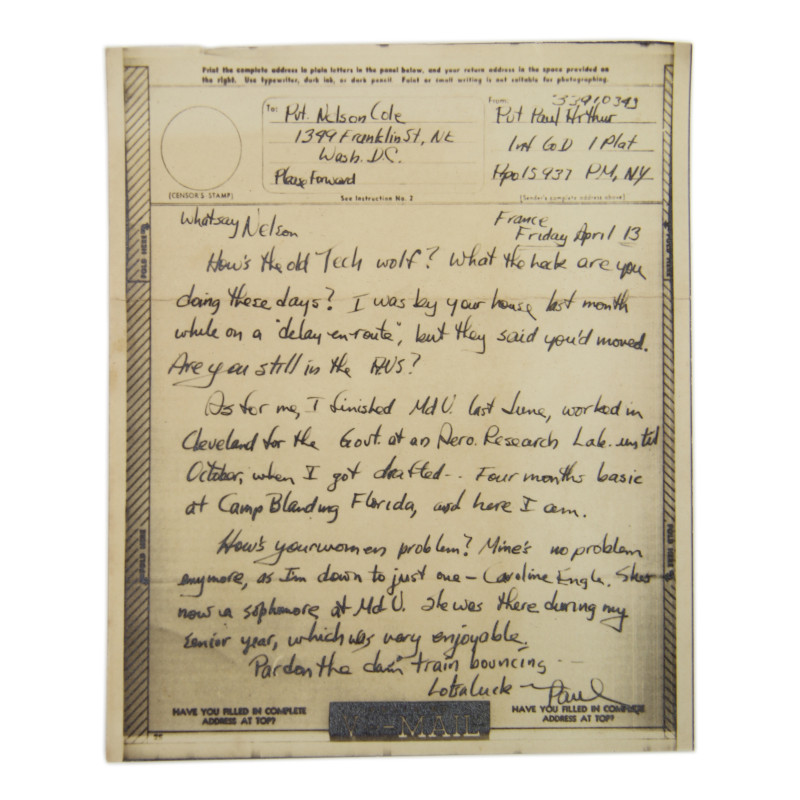 Print the complete address in plain letters in the panel below, and your return address in the space provided on
the right. Use typewriter, dark ink, or dark pencil. Faint or small writing is not suitable for photographing.
To:
Pvt. Nelson Cole
1399 Franklin St, NE
Wash. D.C.
Please Forward
From:
Pvt Paul Arthur
Inf Co D 1 Plat
Apo 15937 PM, NY
(CENSOR'S STAMP)
See Instruction No. 2
(Sender's complete address above)
Whatsay Nelson
France
Friday April 13
How's the old Tech wolf? What the heck are you
doing these days? I was by your house last month
while on a "delay-en-route", but they said you'd moved.
Are you still in the
As for me, I finished Md U. last June, worked in
Cleveland for the Govt. at an Aero. Research Lab. until
October, when I got drafted-- Four months basic
at Camp Blanding Florida, and here I am.
How's your women problem? Mine's no problem
anymore, as I'm down to just one - Caroline Engle. She's
now a sophomore at Md U. She was there during my
senior year, which was very enjoyable.
Pardon the damn train bouncing --
Lotsa Luck - Paul
HAVE YOU FILLED IN COMPLETE
ADDRESS AT TOP?
V-MAIL
HAVE YOU FILLED IN COMPLETE
ADDRESS AT TOP?
FOLD HERE
FOLD HERE
FOLD HERE
FOLD HERE